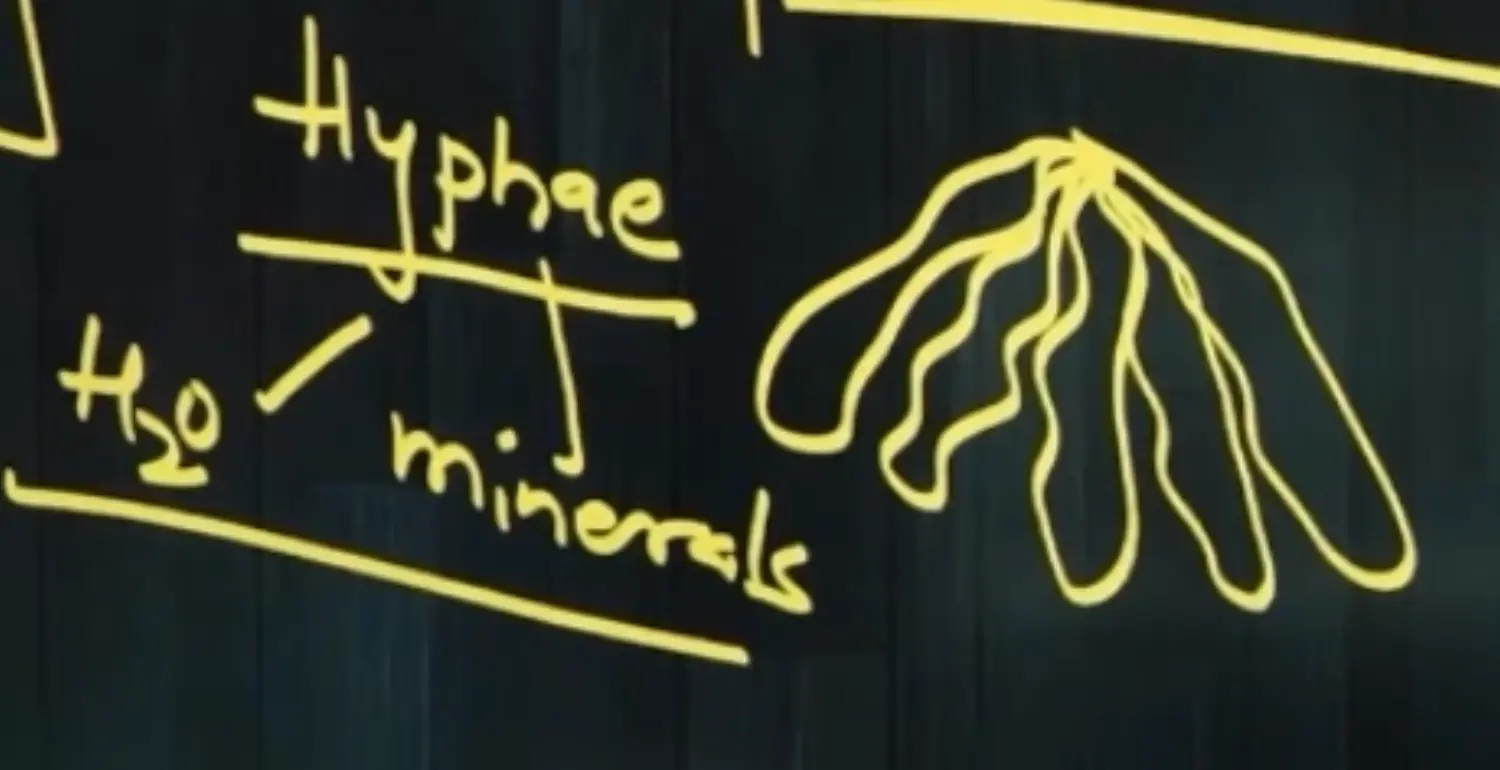 Hyphae
H₂O
minerals